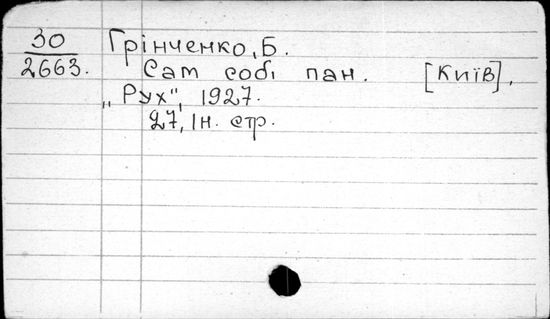 30
2663.
Грінченко, Б.
Сам собі пан. [Київ],
„Рух", 1927.
27, Ін. стр.